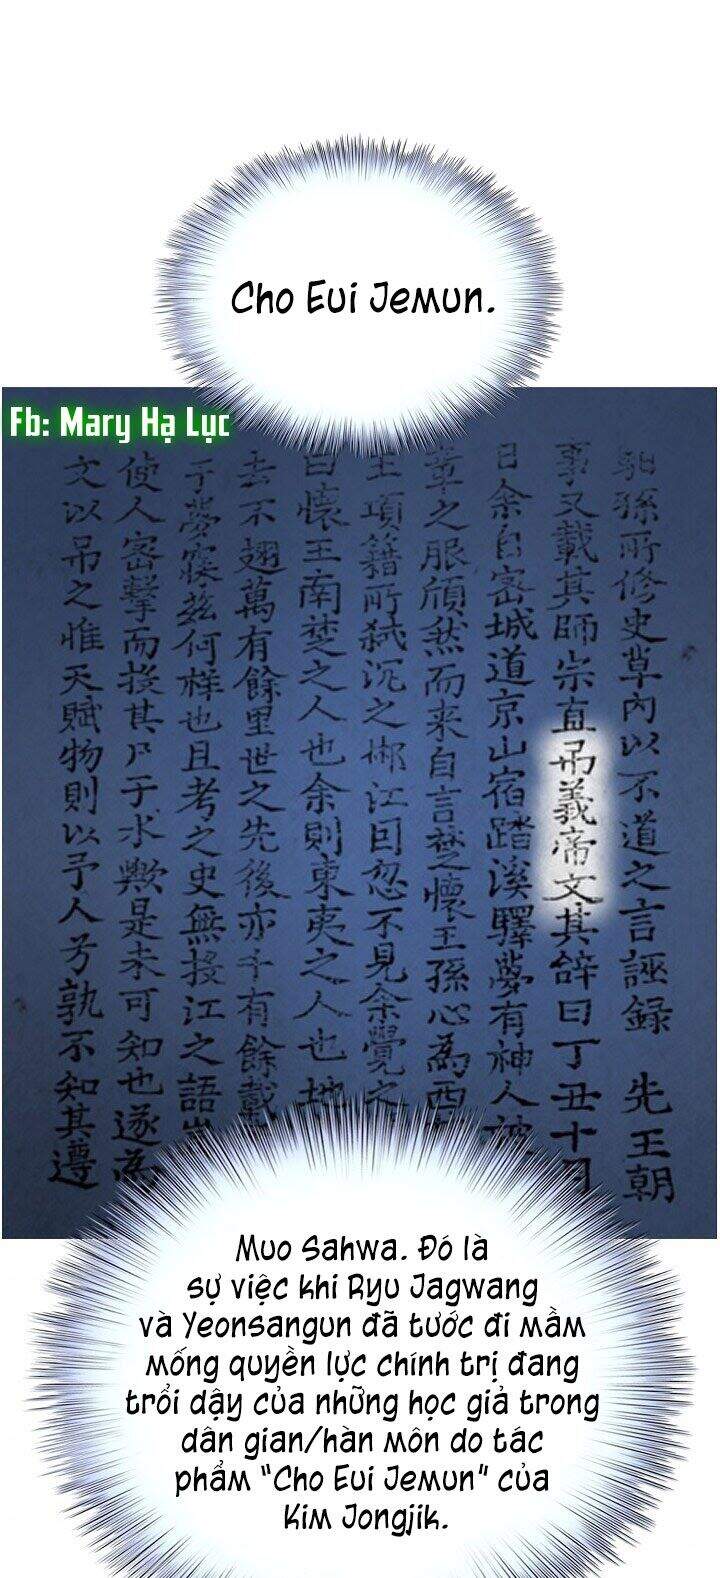 Cho Eui Jemun.
Fb: Mary Hạ Lục
馹孫所修史草內以不道之言誣錄 先王朝
事又載其師宗直弔義帝文其辭曰丁丑十月
日余自密城道京山宿踏溪驛夢有神人被
章之服頎然而來自言楚懷王孫心為西
王項籍所弑沉之郴江因忽不見余覺之
曰懷王南楚之人也余則東夷之人也地
去不翅萬有餘里世之先後亦千有餘載
于夢寐玆何祥也且考之史無投江之語
使人密擊而投其尸于水歟是未可知也遂為
文以弔之惟天賦物則以予人兮孰不知其遵
Muo Sahwa. Đó là
sự việc khi Ryu Jagwang
và Yeonsangun đã tước đi mầm
mống quyền lực chính trị đang
trổi dậy của những học giả trong
dân gian/hàn môn do tác
phẩm “Cho Eui Jemun” của
Kim Jongjik.